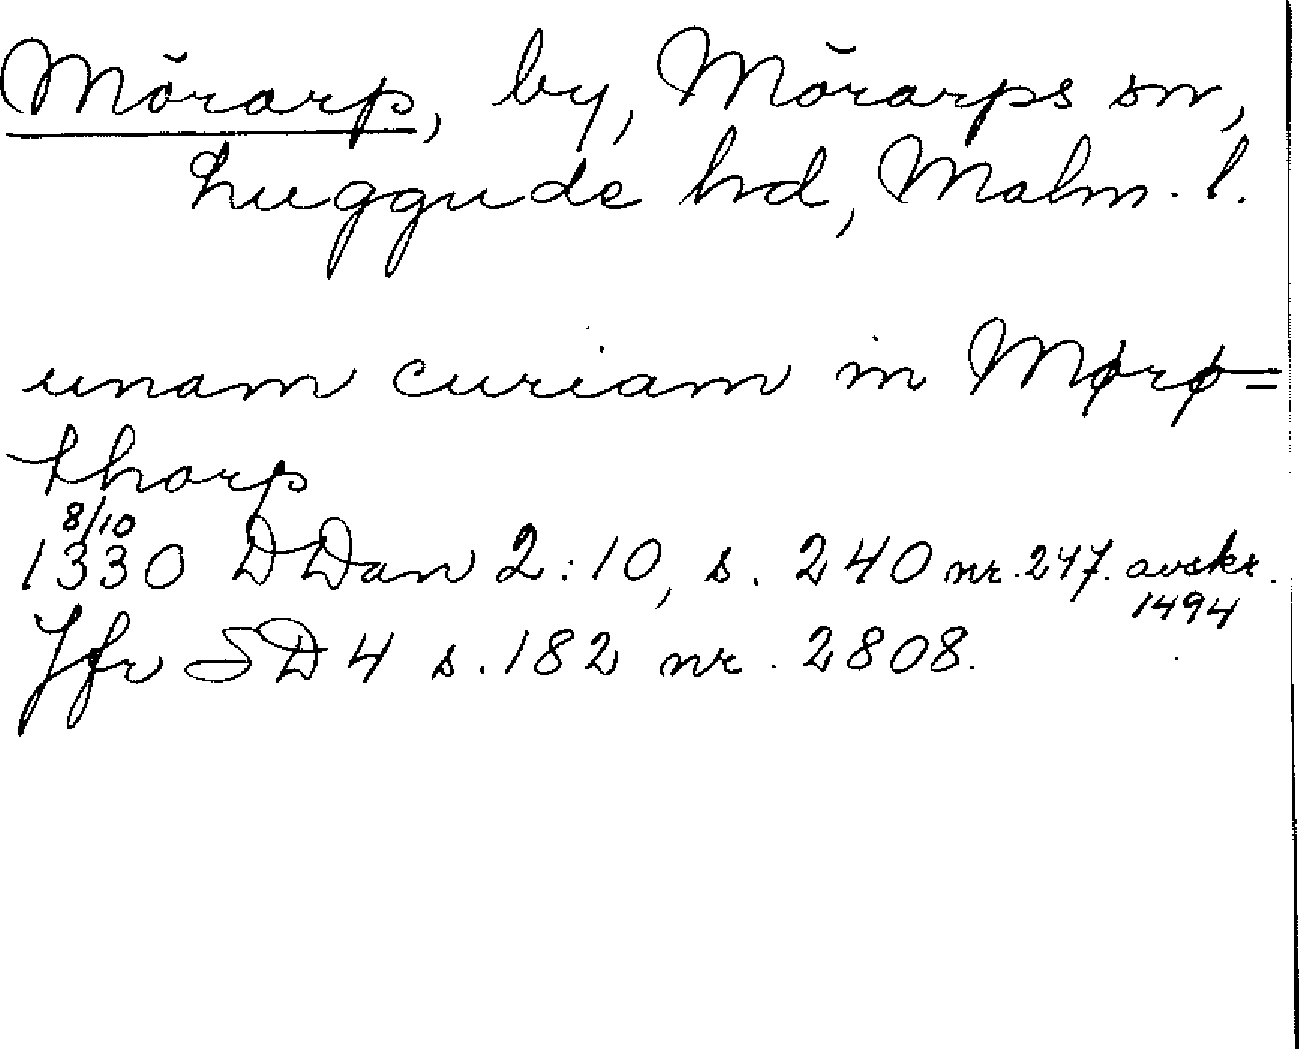 Mörarp, by, Mörarps sn,
Luggude hd, Malm. l.
unam curiam in Mørø=
thorp
8/10
1330 DDan 2:10, s. 240 nr. 247. avskr.
1494
Jfr SD 4 s. 182 nr. 2808.